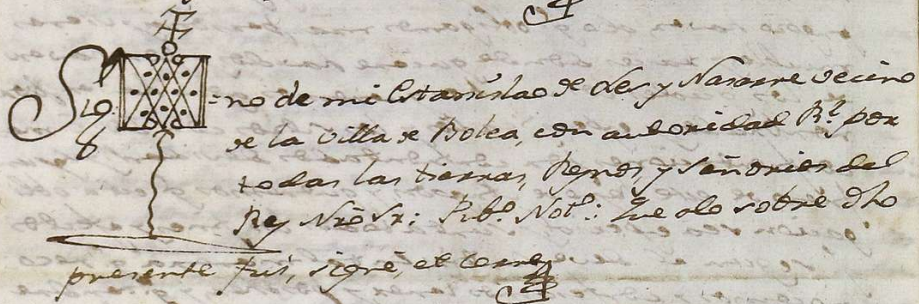 Sig=no de mi Estanislao de Les y Nasarre vecino
de la Villa de Bolea, con autoridad Rl. por
todas las tierras, Reynos y Señorios del
Rey Nrô Sr: Pubº. Notº.: Que a lo sobre dhô
presente fui, signé, et cerré